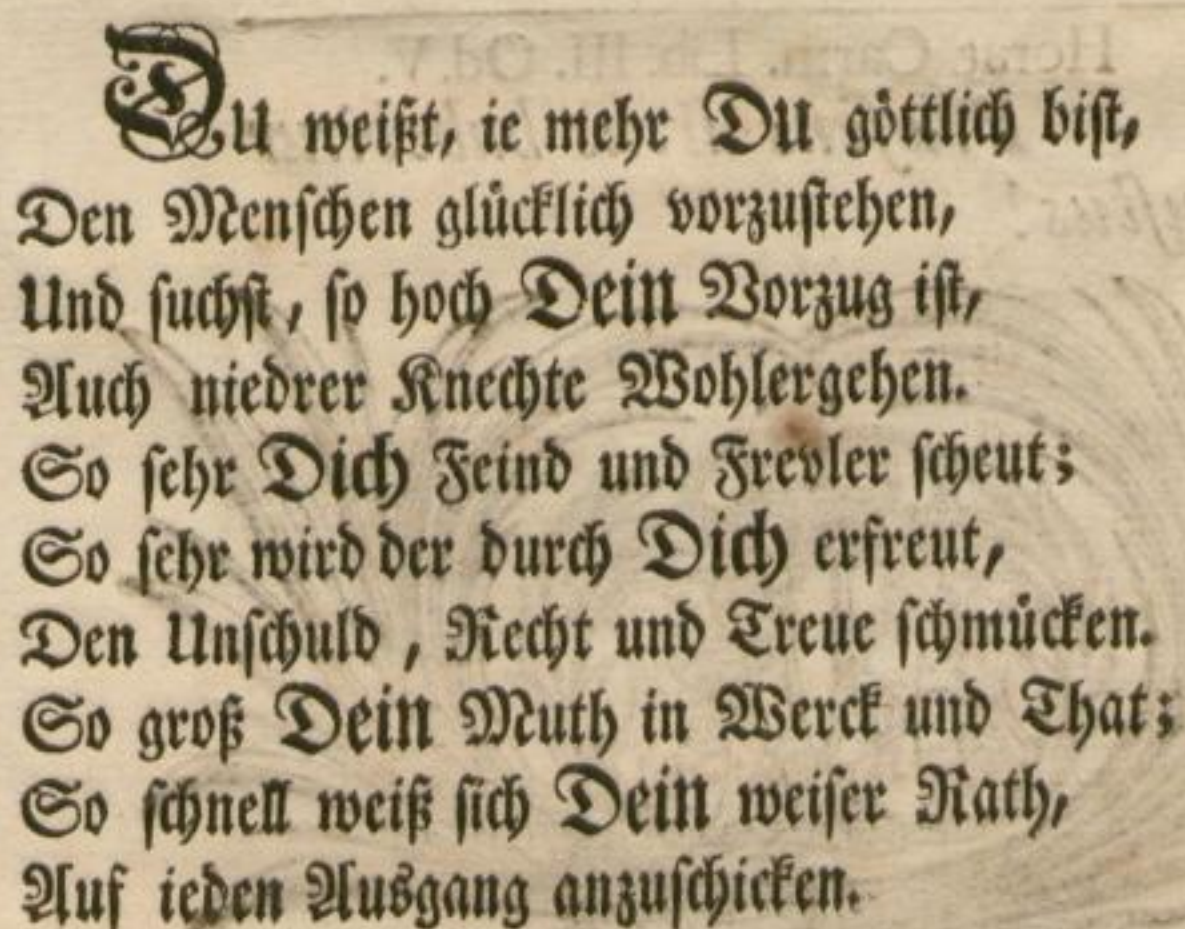 DU weißt, ie mehr DU göttlich bist,
Den Menschen glücklich vorzustehen,
Und suchst, so hoch Dein Vorzug ist,
Auch niedrer Knechte Wohlergehen.
So sehr Dich Feind und Frevler scheut;
So sehr wird der durch Dich erfreut,
Den Unschuld, Recht und Treue schmücken.
So groß Dein Muth in Werck und That;
So schnell weiß sich Dein weiser Rath,
Auf ieden Ausgang anzuschicken.